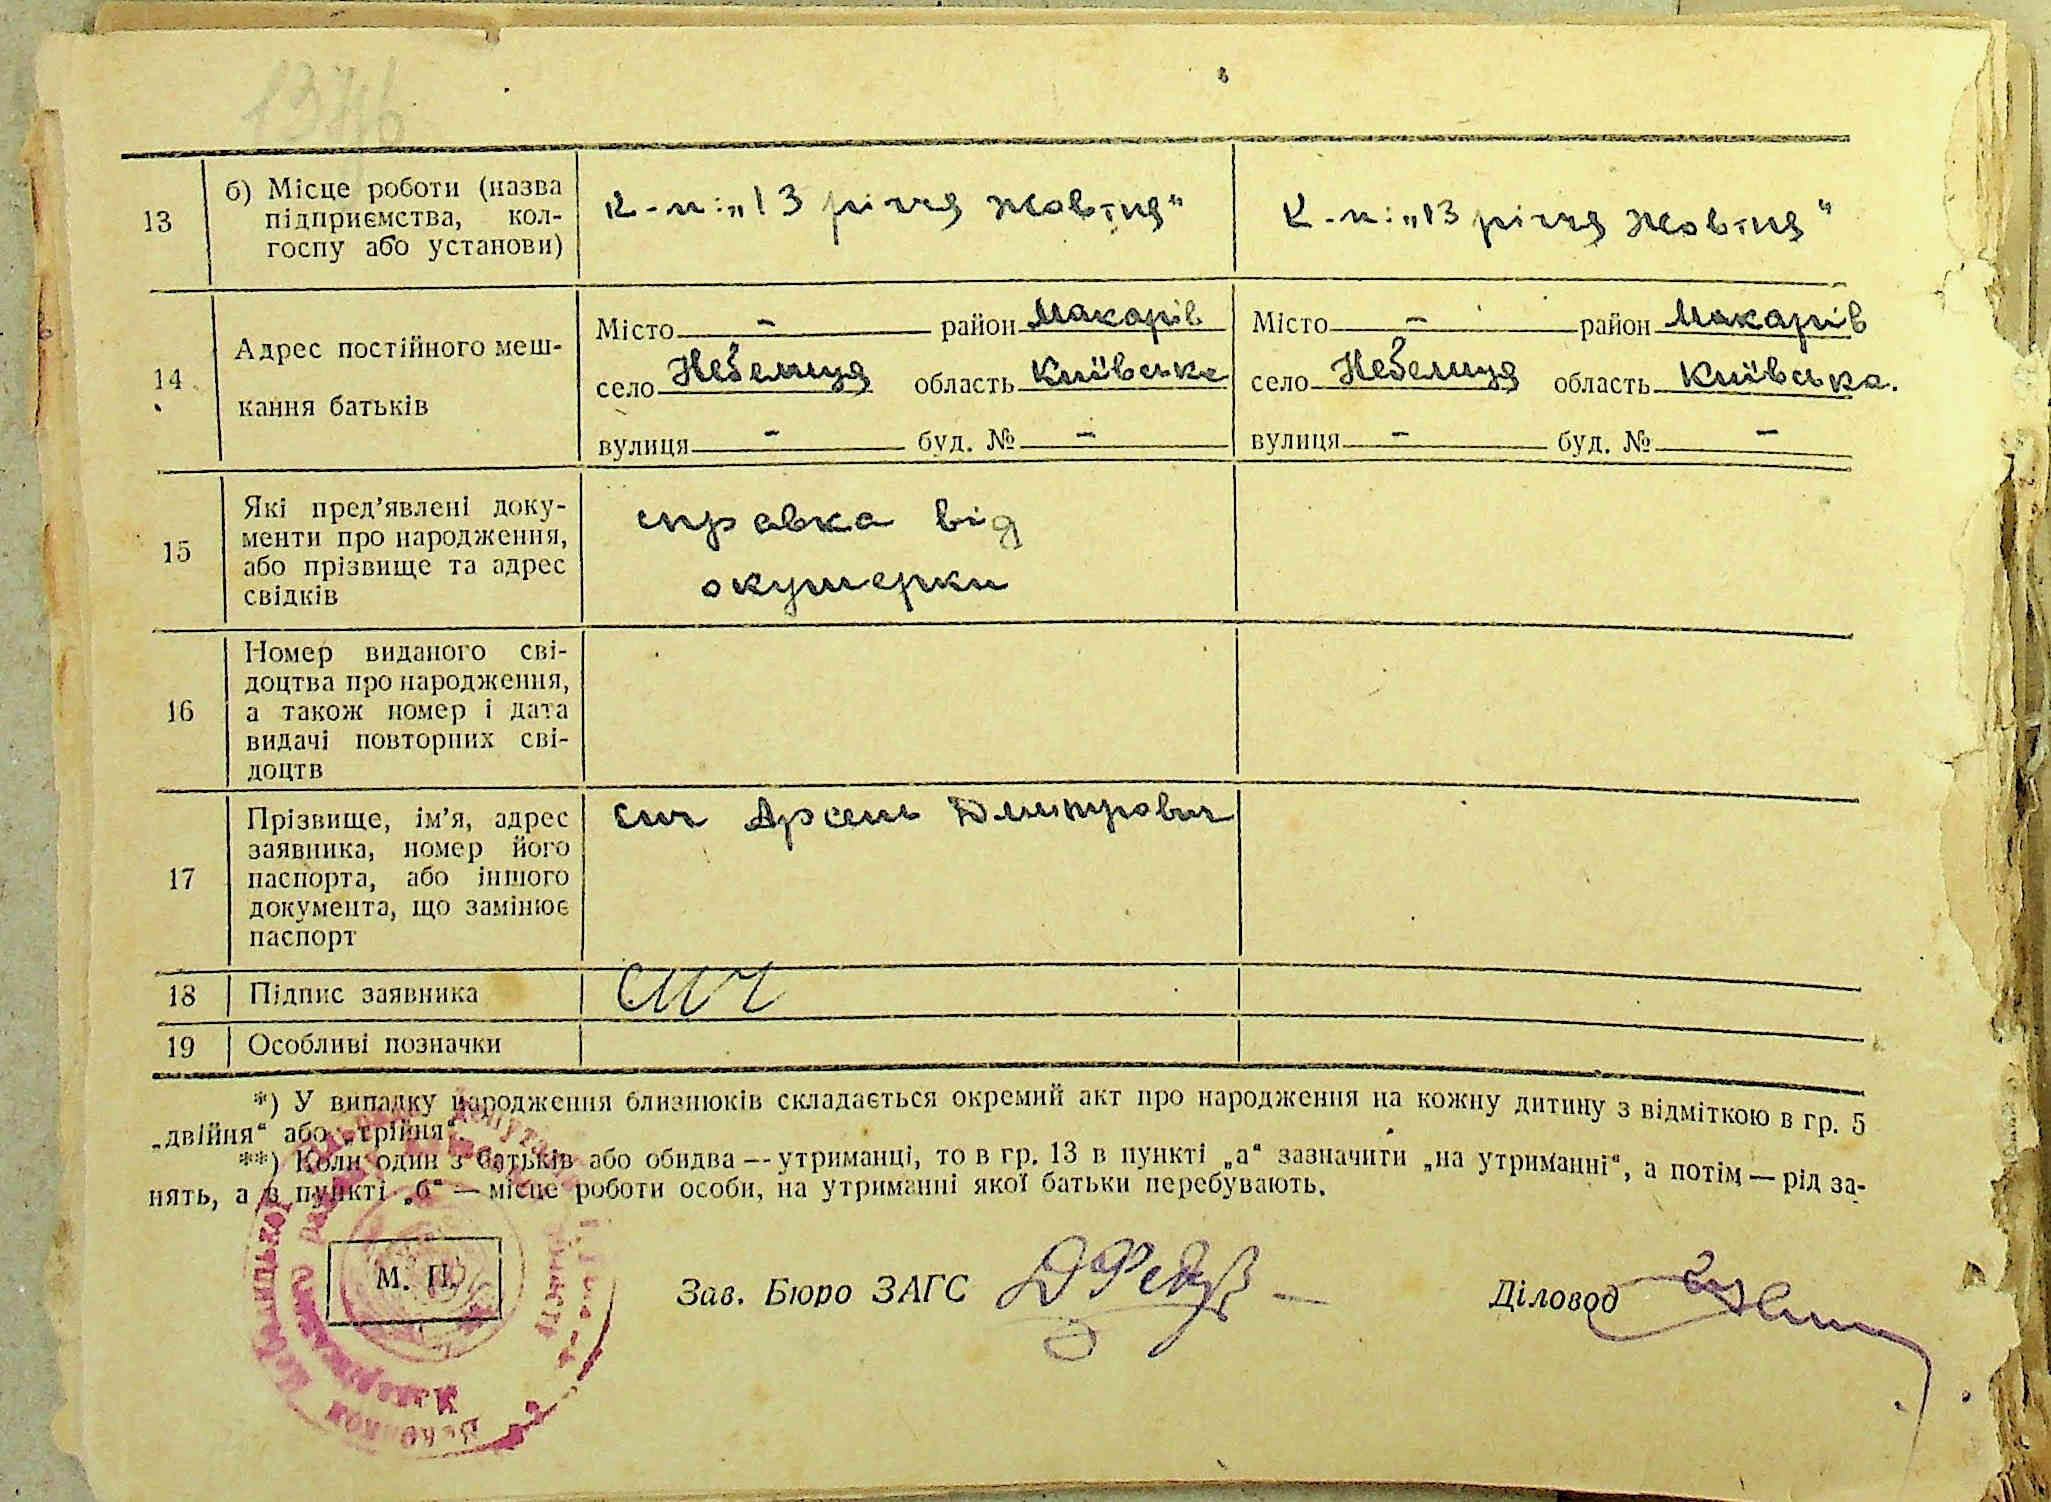 1346
13
б) Місце роботи (назва
підприємства, кол-
госпу або установи)
к-п: „13 річчя Жовтня“
к-п: „13 річчя Жовтня“
14
Адрес постійного меш-
кання батьків
Місто - район Макарів
село Небелиця область Київська
вулиця - буд. № -
Місто - район Макарів
село Небелиця область Київська.
вулиця - буд. № -
15
Які пред’явлені доку-
менти про народження,
або прізвище та адрес
свідків
справка від
окушерки
16
Номер виданого сві-
доцтва про народження,
а також номер і дата
видачі повторних сві-
доцтв
17
Прізвище, ім’я, адрес
заявника, номер його
паспорта, або іншого
документа, що замінює
паспорт
Сич Арсень Дмитрович
18
Підпис заявника
Сич
19
Особливі позначки
*) У випадку народження близнюків складається окремий акт про народження на кожну дитину з відміткою в гр. 5
„двійня“ або „трійня“.
**) Коли один з батьків або обидва — утриманці, то в гр. 13 в пункті „а“ зазначити „на утриманні“, а потім — рід за-
нять, а в пункті „б“ — місце роботи особи, на утриманні якої батьки перебувають.
М. П.
Зав. Бюро ЗАГС
Діловод